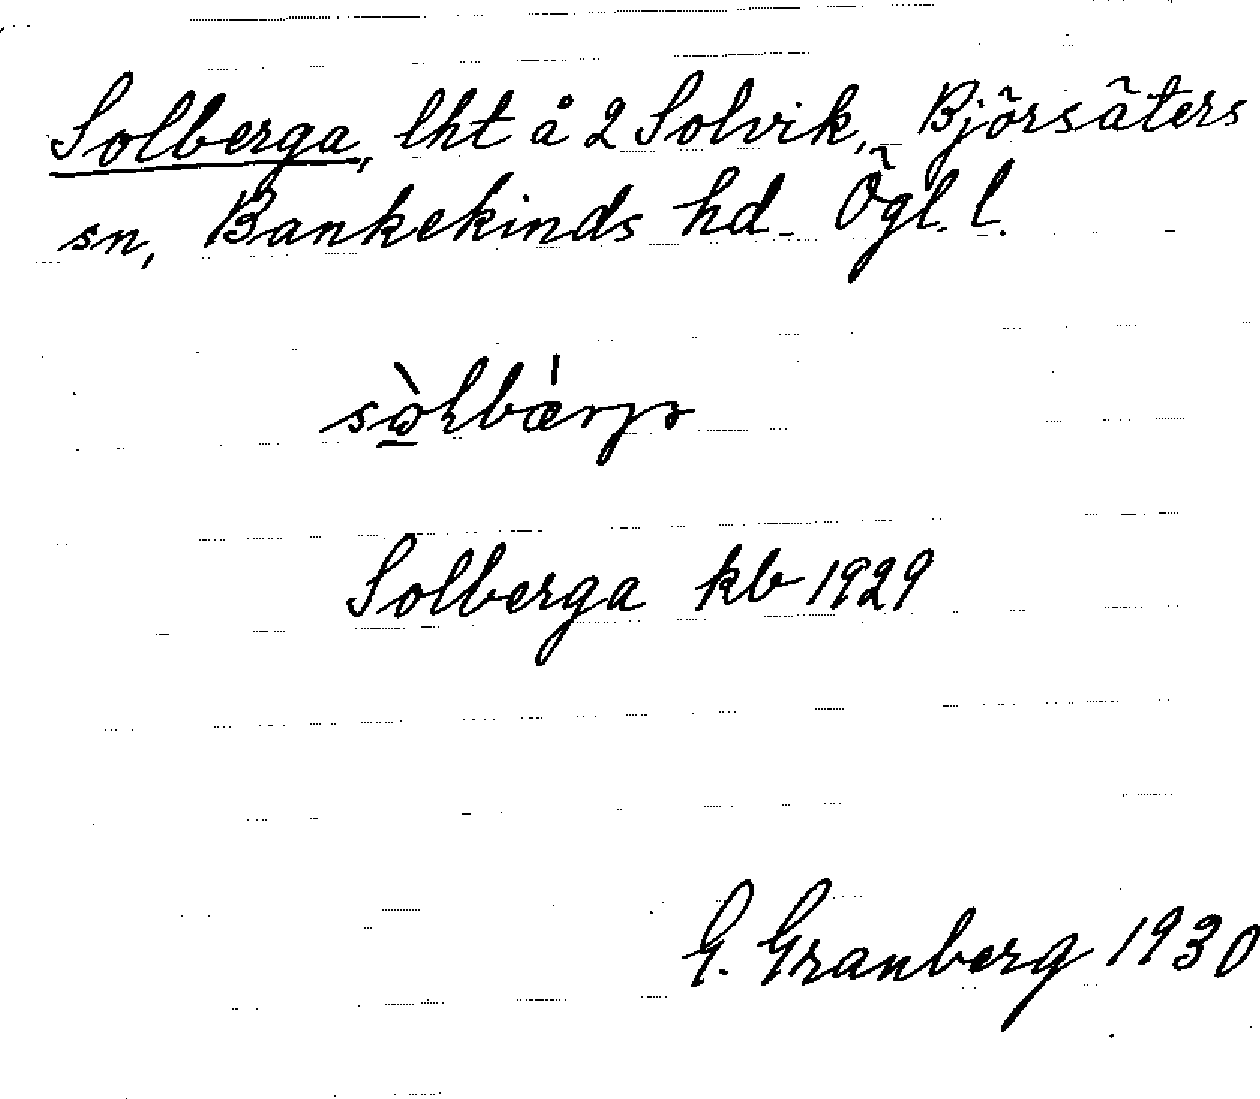 Solberga, lht å 2 Solvik, Björsäters
sn, Bankekinds hd. Ögl. l.
Solberga kb 1929
G. Granberg 1930